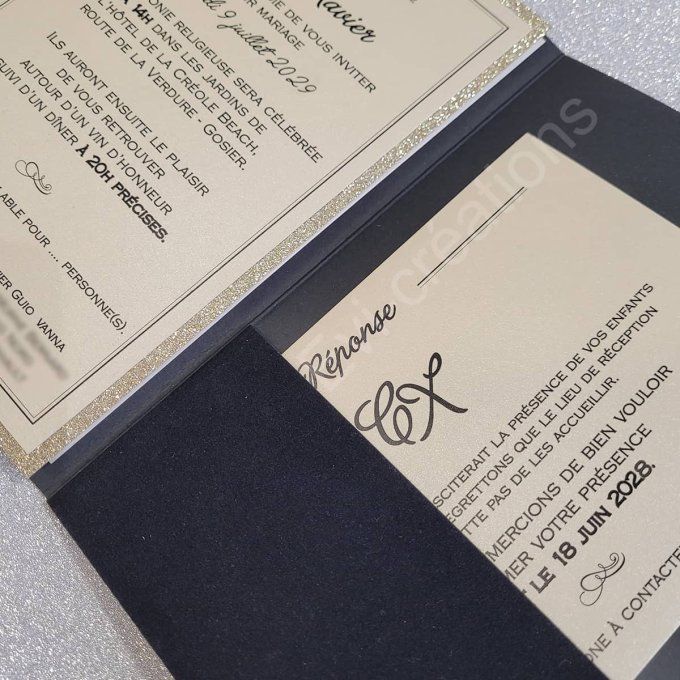 Xavier
IE DE VOUS INVITER
R MARIAGE
9 juillet 2029
ONIE RELIGIEUSE SERA CÉLÉBRÉE
À 14H DANS LES JARDINS DE
L'HÔTEL DE LA CRÉOLE BEACH,
ROUTE DE LA VERDURE - GOSIER.
ILS AURONT ENSUITE LE PLAISIR
DE VOUS RETROUVER
AUTOUR D'UN VIN D'HONNEUR
SUIVI D'UN DÎNER À 20H PRÉCISES.
ABLE POUR .... PERSONNE(S).
IER GUIO VANNA
Réponse
CX
SCITERAIT LA PRÉSENCE DE VOS ENFANTS
EGRETTONS QUE LE LIEU DE RÉCEPTION
TTE PAS DE LES ACCUEILLIR.
MERCIONS DE BIEN VOULOIR
MER VOTRE PRÉSENCE
T LE 18 JUIN 2028.
ONE À CONTACTE
créations